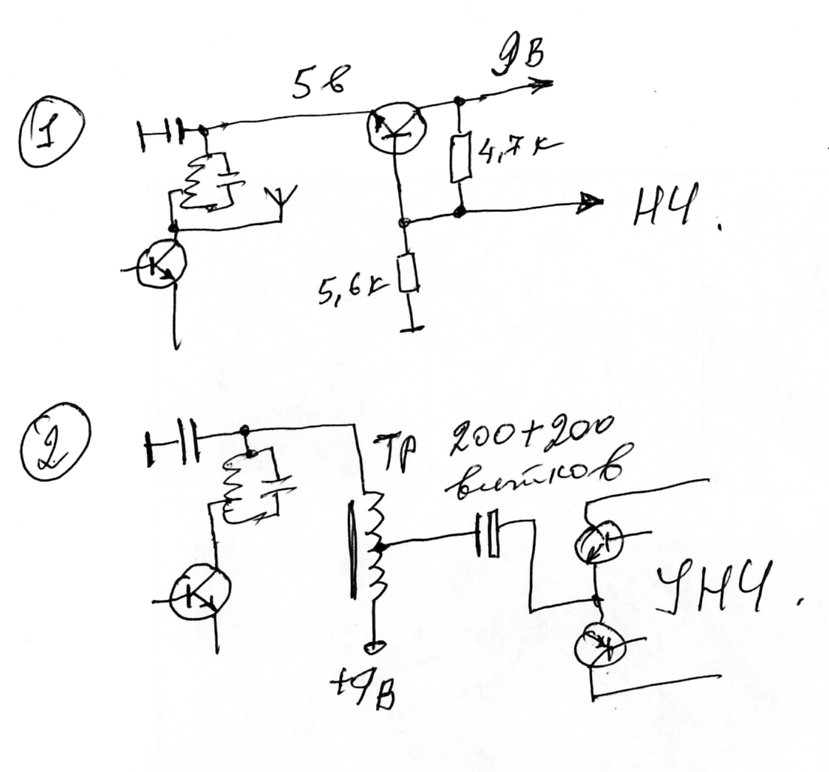 1
5в
9В
4,7к
НЧ.
5,6к
2
ТР 200+200
витков
УНЧ.
+9В